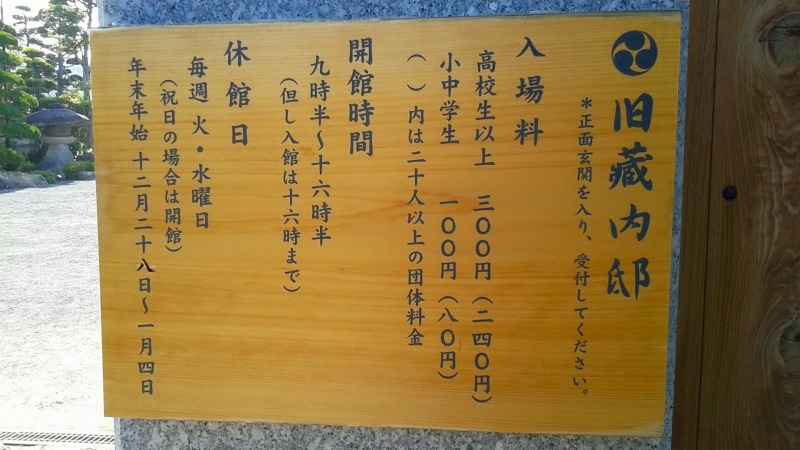 旧藏内邸
＊正面玄関を入り、受付してください。
入場料
高校生以上 三〇〇円（二四〇円）
小中学生 一〇〇円（八〇円）
（ ）内は二十人以上の団体料金
開館時間
九時半～十六時半
（但し入館は十六時まで）
休館日
毎週 火・水曜日
（祝日の場合は開館）
年末年始 十二月二十八日～一月四日